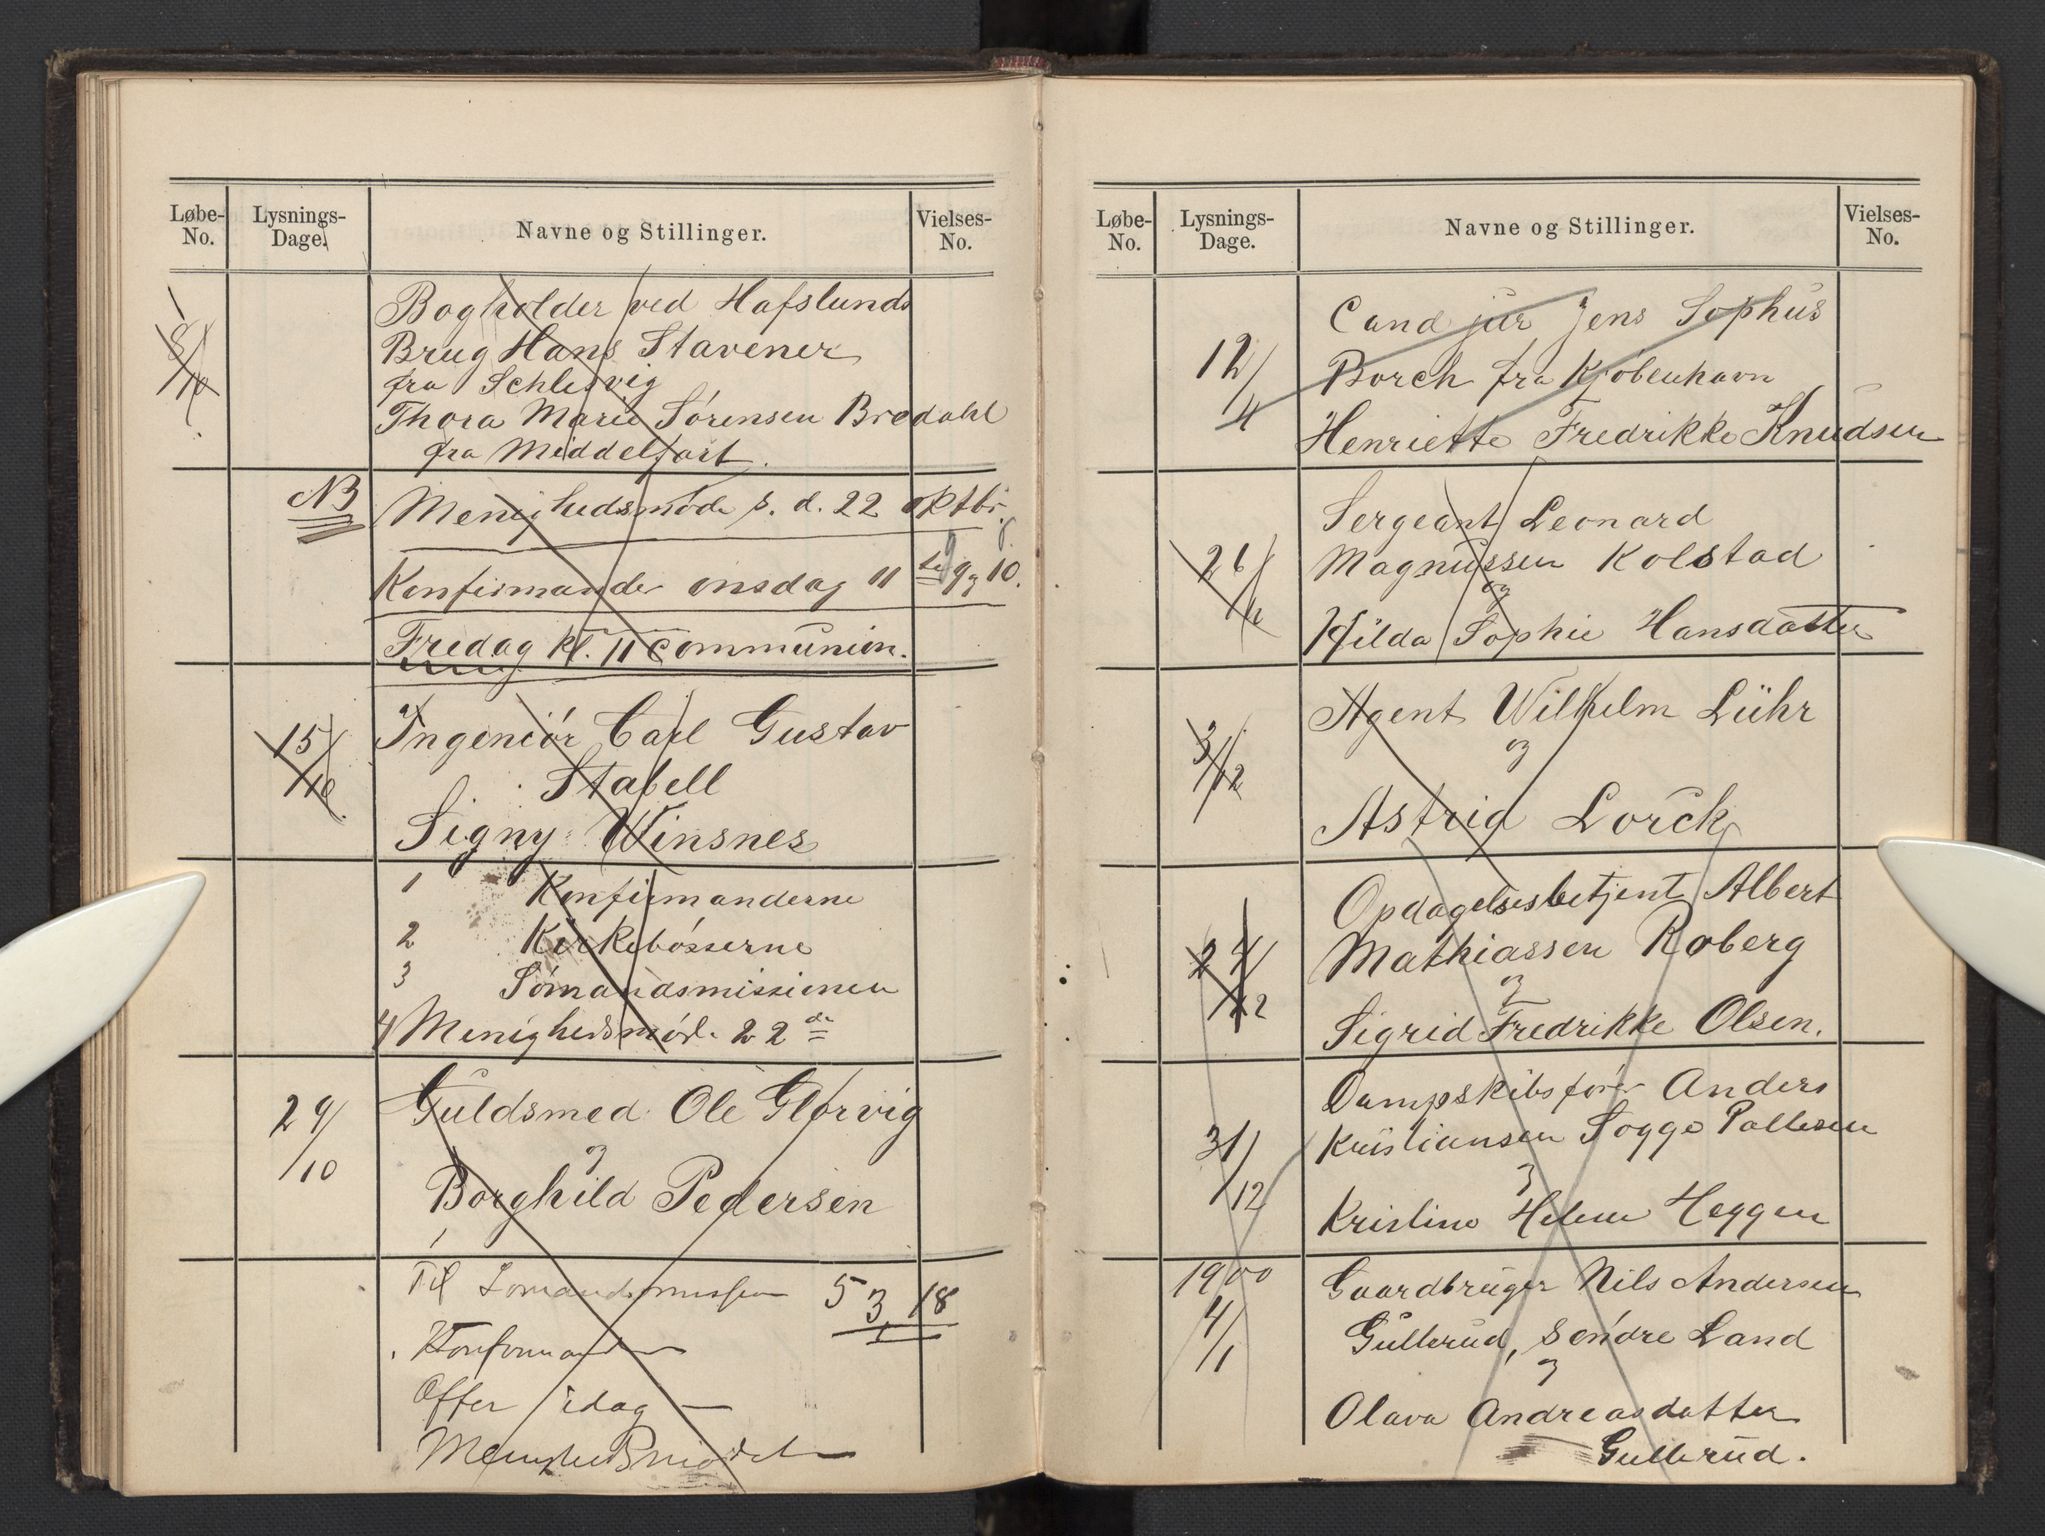 Løbe-No. Lysnings-Dage. Navne og Stillinger. Vielses-No.
8/10
Bogholder ved Hafslunds
Brug Hans Stavener
fra Schlesvig
Thora Marie Sørensen Bredahl
fra Middelfart.
NB Menighedsmøde s. d. 22 oktbr.
Konfirmander onsdag 11 te 9 og 10.
Fredag kl. 11 communion.
15/10
Ingeniør Carl Gustav
Stabell
Signy Winsnes
1 Konfirmanderne
2 Kirkebøsserne
3 Sømandsmissionen
4 Menighedsmøde 22de
29/10
Guldsmed Ole Glørvig
og
Borghild Pedersen
Til Sømandsmissionen 53,18
Konfirmander
Offer idag —
Menighedsmødet
Løbe-No. Lysnings-Dage. Navne og Stillinger. Vielses-No.
12/4
Cand jur Jens Sophus
Borch fra Kjøbenhavn
Henriette Fredrikke Knudsen
26/
Sergeant Leonard
Magnussen Kolstad
og
Hilda Sophie Hansdatter
3/12
Agent Wilhelm Lühr
og
Astrid Lorck
24/12
Opdagelsesbetjent Albert
Mathiassen Roberg
og
Sigrid Fredrikke Olsen.
31/12
Dampskibsfører Anders
Kristiansen Sogge Pallesen
og
Kristine Helene Heggen
1900
4/1
Gaardbruger Nils Andersen
Gullerud, Søndre Land
og
Olava Andreasdatter
Gullerud.